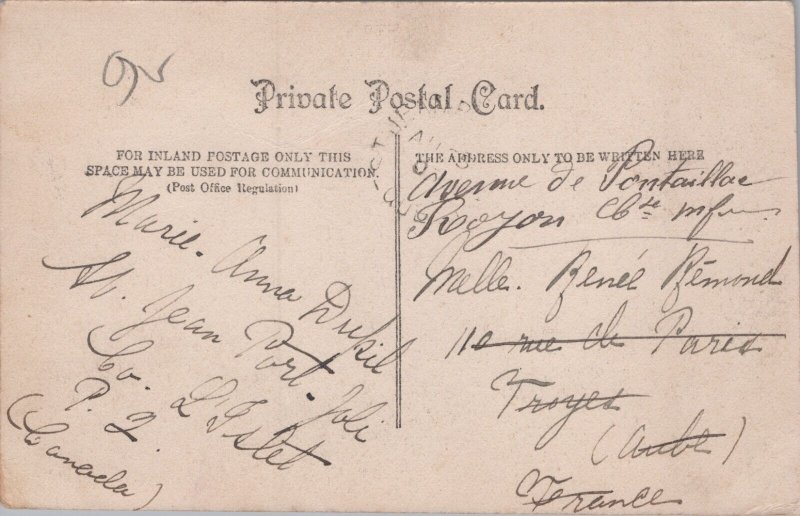 92
Private Postal Card.
FOR INLAND POSTAGE ONLY THIS
SPACE MAY BE USED FOR COMMUNICATION.
(Post Office Regulation)
Marie-Anna Dupil
St. Jean Port-Joli
Co. L'Islet
P. Q.
(Canada)
THE ADDRESS ONLY TO BE WRITTEN HERE
Avenue de Pontaillac
Royan
Melle. Renée Rémond
110 rue de Paris
Troyes
(Aube)
France